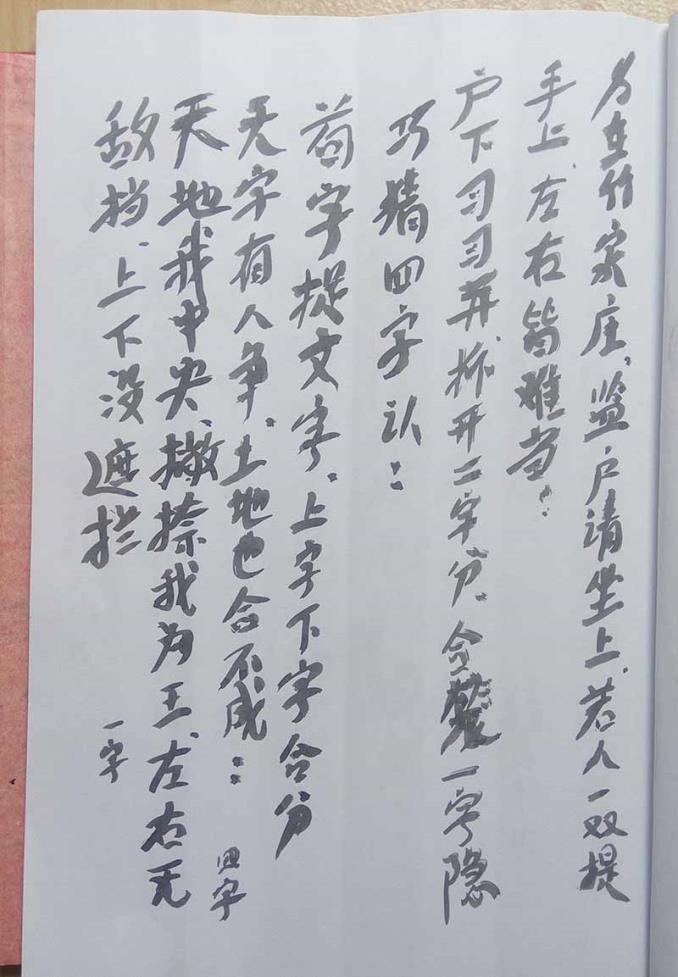 名在竹家庄、监户请坐上、若人一双提
手上、左右皆难当:
户下习习弄、拆开二字分、合装一字隐
巧猜四字认:
首字提文字、上字下字合分
天字有人争、土地也合不成: 四字
天地我中央、撇捺我为王、左右无
敌挡、上下没遮拦 一字